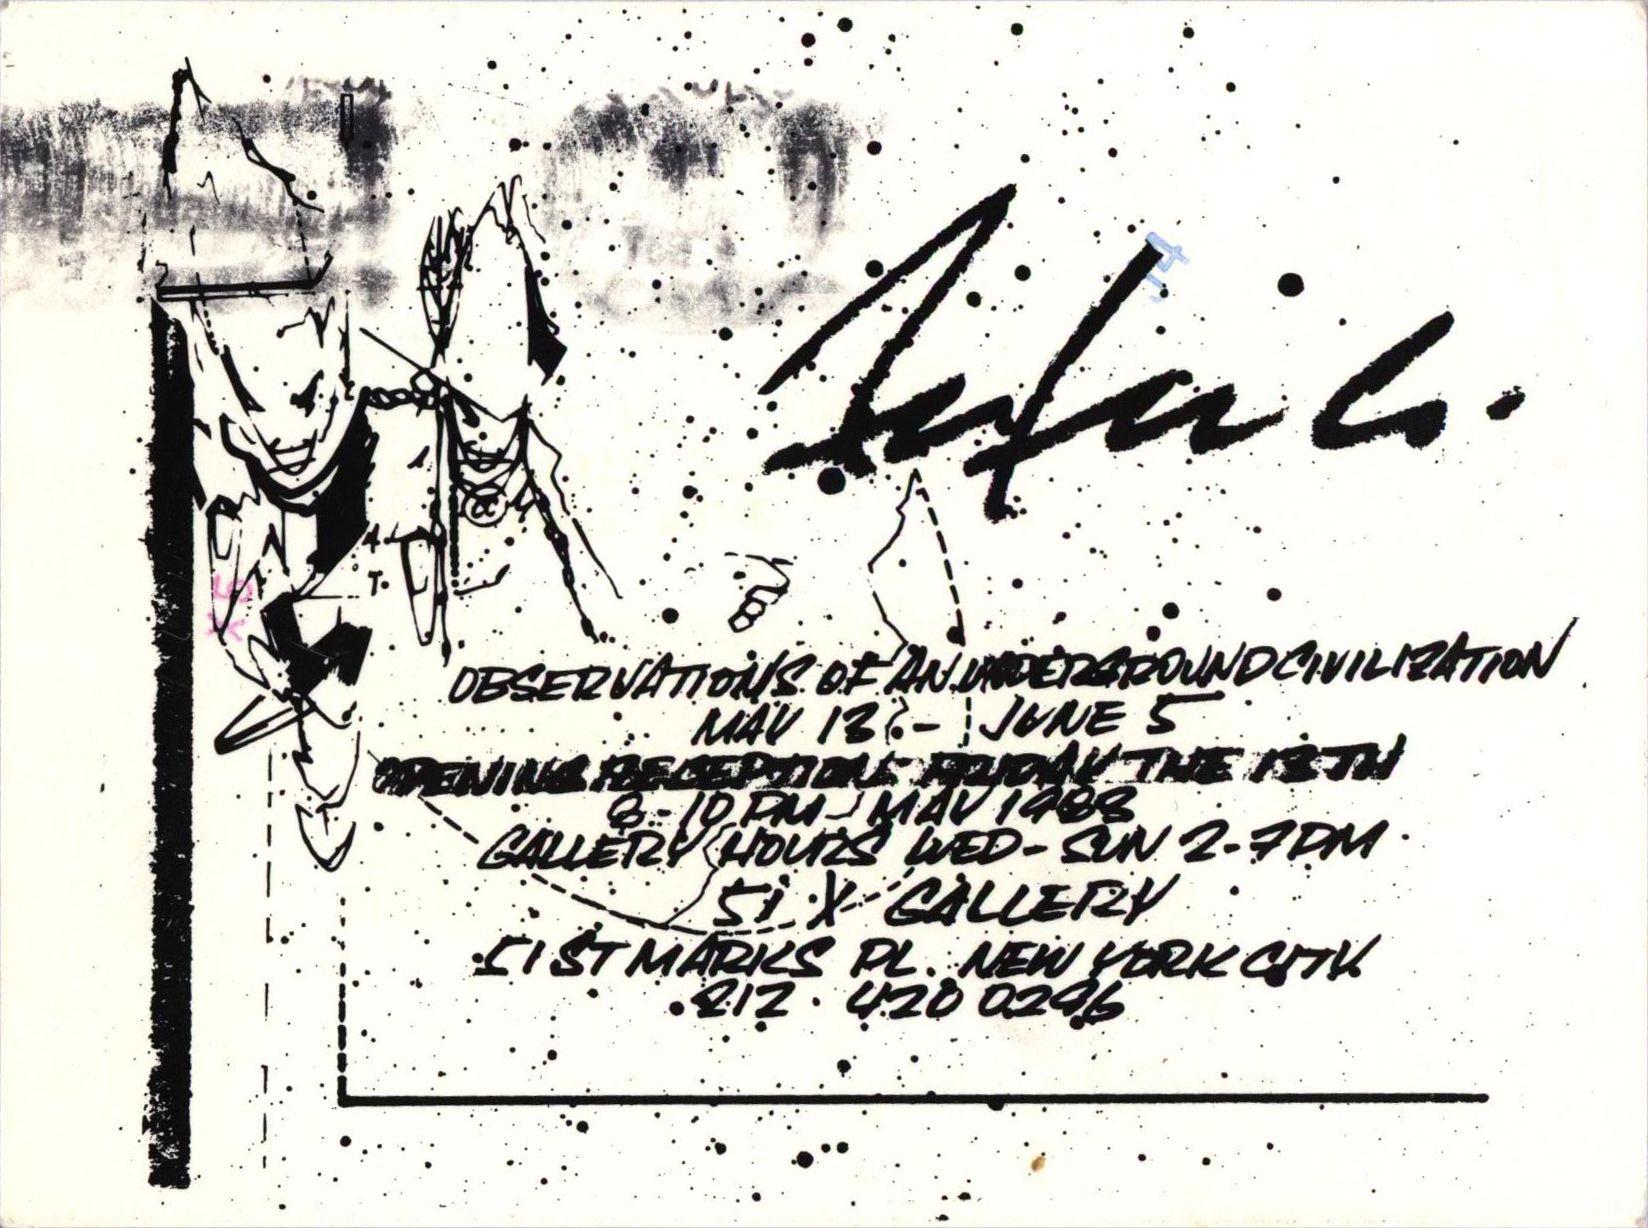 OBSERVATIONS OF AN UNDERGROUND CIVILIZATION
MAY 13 - JUNE 5
OPENING RECEPTION FRIDAY THE 13TH
8-10 PM MAY 1983
GALLERY HOURS WED-SUN 2-7PM
51 X GALLERY
51 ST MARKS PL. NEW YORK CITY
212 · 420 0296